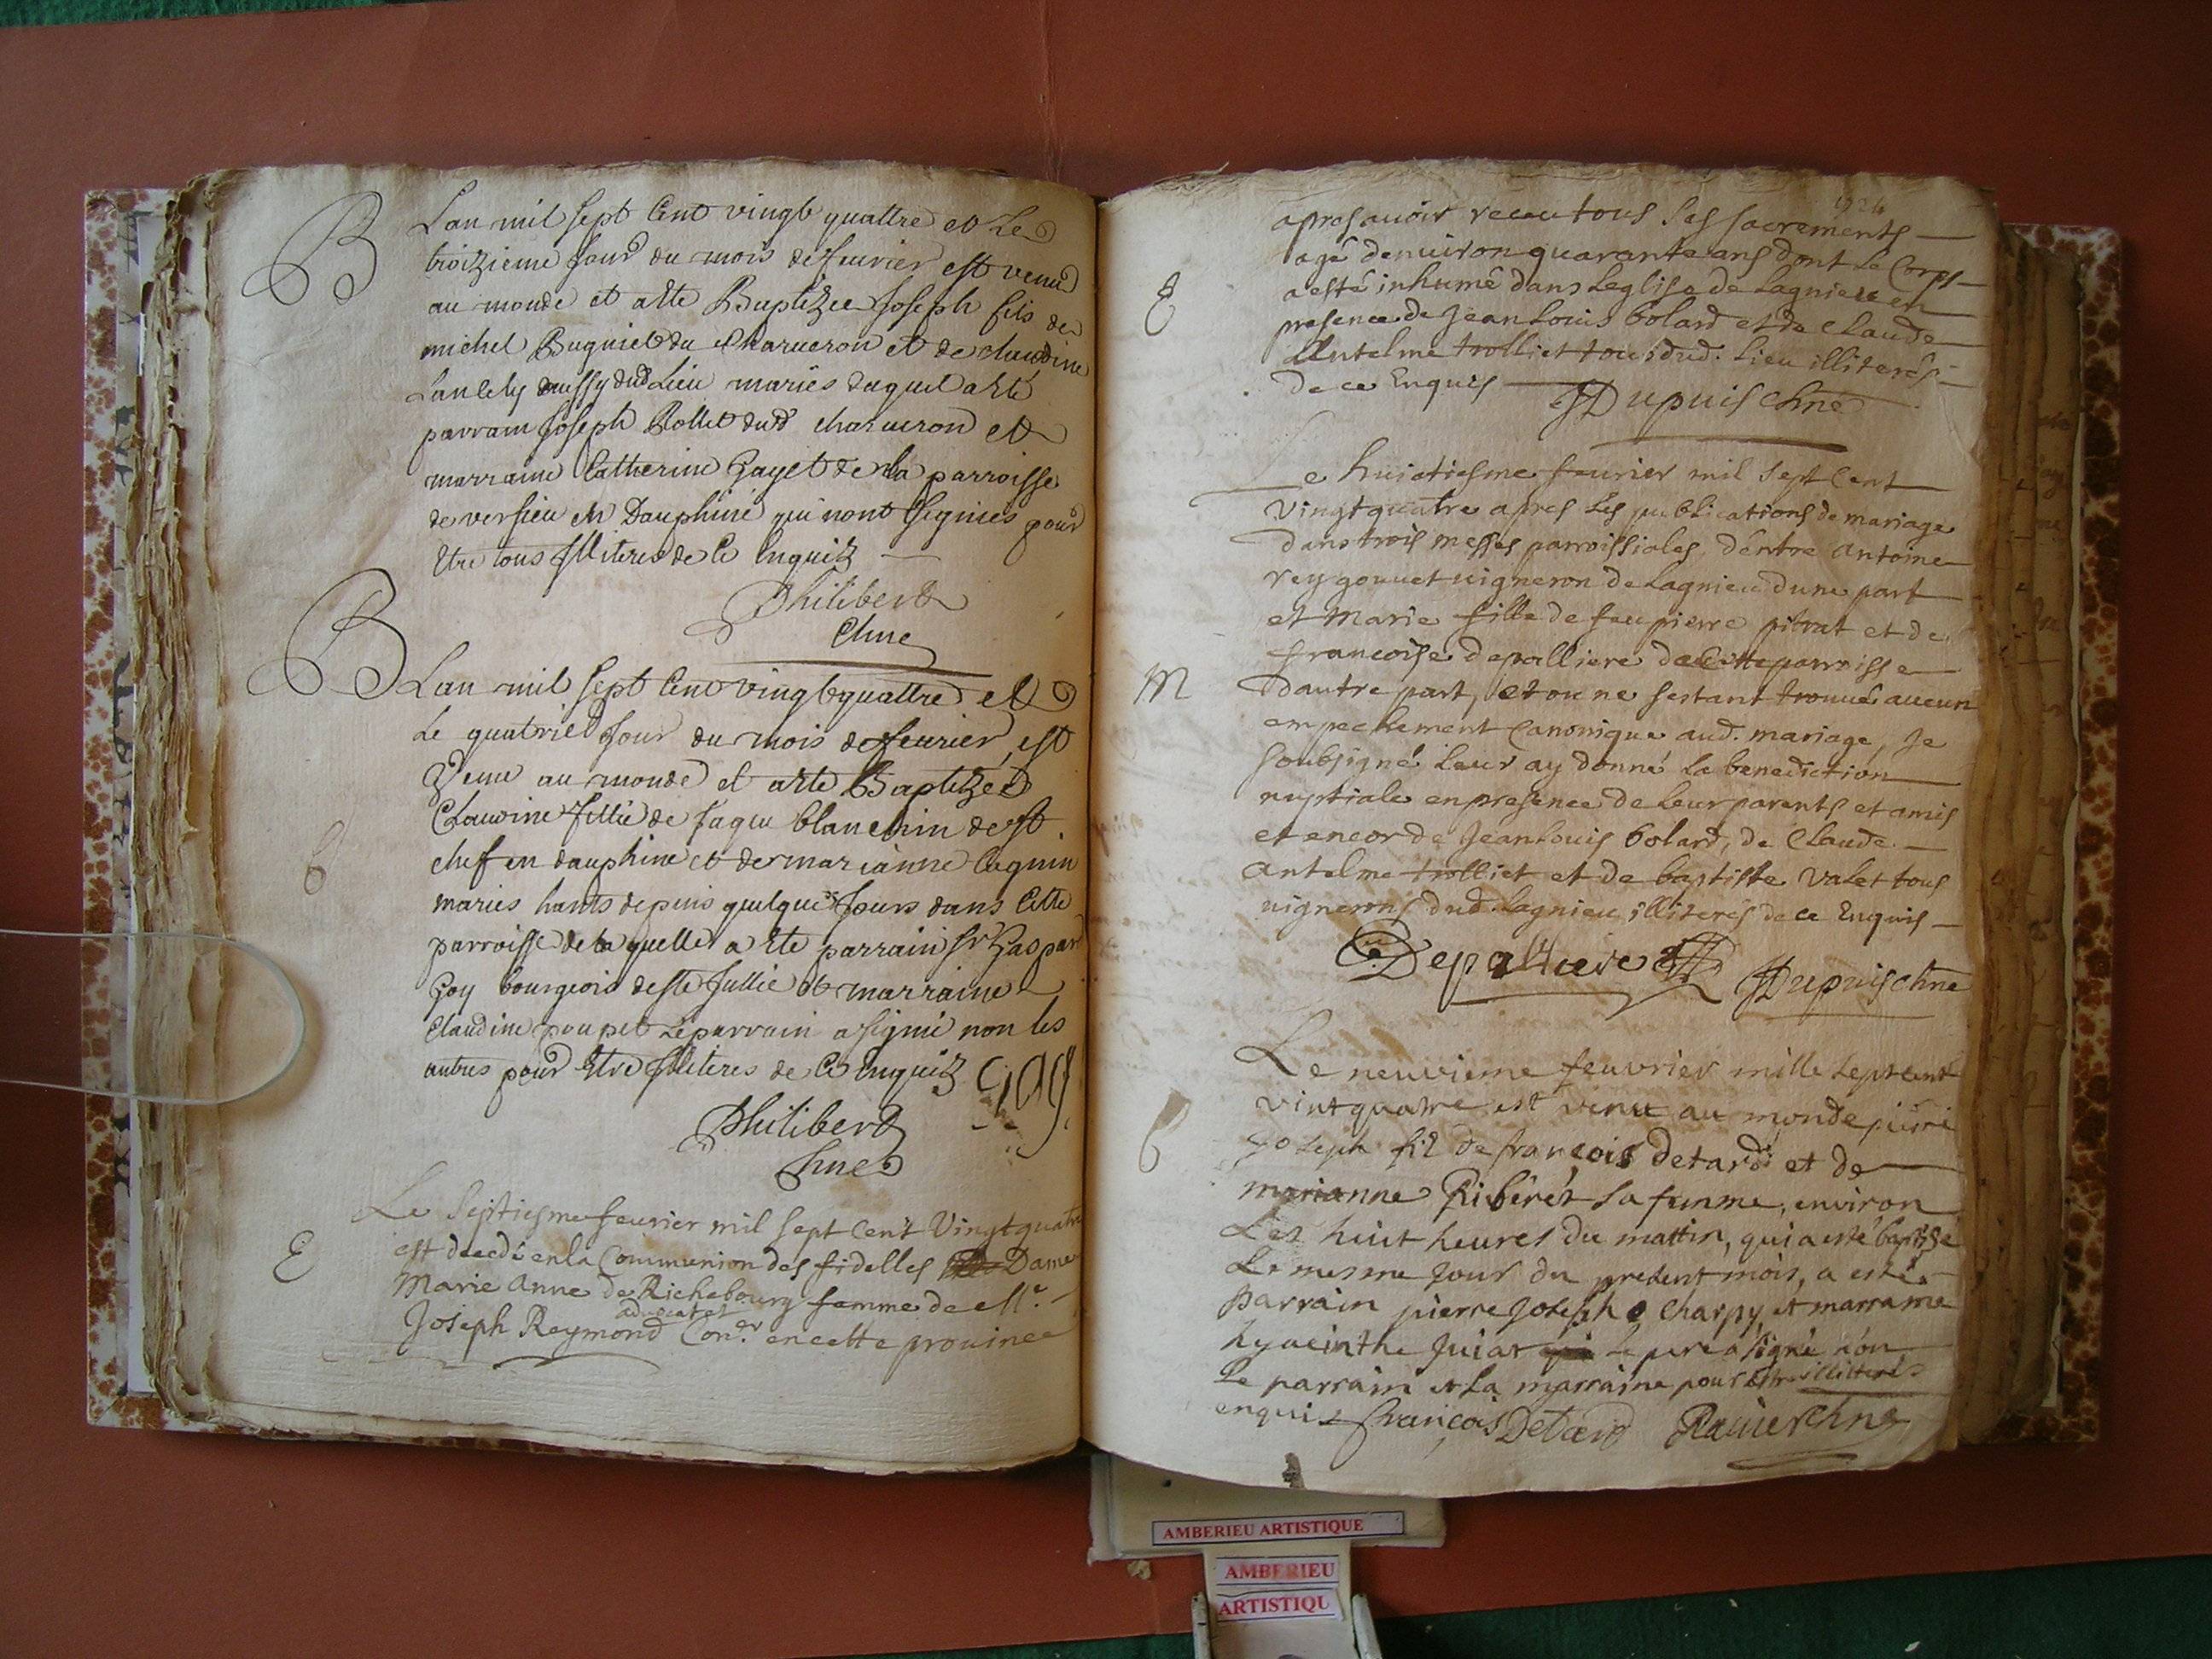 B
Lan mil sept Cent vingt quattre et Le
troizieme Jour du mois de feurier est venu
au monde et a este Baptizee Joseph fils de
michel Buguiet du Charueron et de claudine
aussy dud Lieu mariés duquel a esté
parrain Joseph Rollet dud charueron et
marraine Catherine Gayet de la parroisse
de versieu en Dauphiné qui nont signés pour
Etre tous Illiteres de Ce Enquis
Philibert
Chne
B
Lan mil sept Cent vingt quattre et
Le quatrie Jour du mois de feurier est
Venue au monde et a este Baptizée
Claudine fille de Jaque blanchin de st
chef en dauphine et de marianne Cuguin
mariés hants depuis quelque Jours dans Cette
parroisse de la quelle a Ete parrain sr Gaspar
Goy bourgeois de ste Jullie et marraine
Claudine poupet Le parrain a signé non les
autres pour Etre Illiteres de Ce Enquis Goy
b
Philibert
Chne
E
Le septiesme feurier mil sept cent Vingt quatre
est decedé en la Communion des fidelles Dame
Marie Anne de Richebourg femme de Me
advocat et
Joseph Reymond Con.er en cette prouince
1724
apres auoir receu tous ses sacrements
agé denuiron quarante ans dont Le Corps
E
a esté inhumé dans Leglise de Lagnieu en
presence de Jean Louis bolard et de Claude
Antelme trolliet tous dud. Lieu illiterés
de ce Enquis
Dupuis Chne
Le huictiesme feurier mil sept Cent
Vingt quatre apres Les publications de mariage
dans trois messes parroissiales, dentre Antoine
rey gouuet uigneron de Lagnieu dune part
et Marie fille de feu pierre pitrat et de
francoise depalliere de cette parroisse
M
dautre part, et ou ne sestant trouué aucun
empechement Canonique aud. mariage, Je
soubsigné Leur ay donné La benediction
nuptiale en presence de Leur parents et amis
et encor de Jean Louis bolard, de Claude
antelme trolliet et de baptiste Valet tous
uignerons dud. Lagnieu illiterés de ce Enquis
Depalliere Dupuis Chne
Le neuvieme feuvrier mille septcent
vint quatre est venu au monde pierre
b
Joseph fil de françois detard et de
marianne Ribérét sa femme, environ
Les huit heures du mattin, qui a esté baptisé
Le mesme Jour du present mois, a esté
parrain pierre Joseph Charpy, et marraine
hyacinthe Juiar Le pere a signé non
Le parrain et La marraine pour Estre illitterés
enquis françois Detard Rauier Chne
AMBERIEU ARTISTIQUE
AMBERIEU
ARTISTIQU